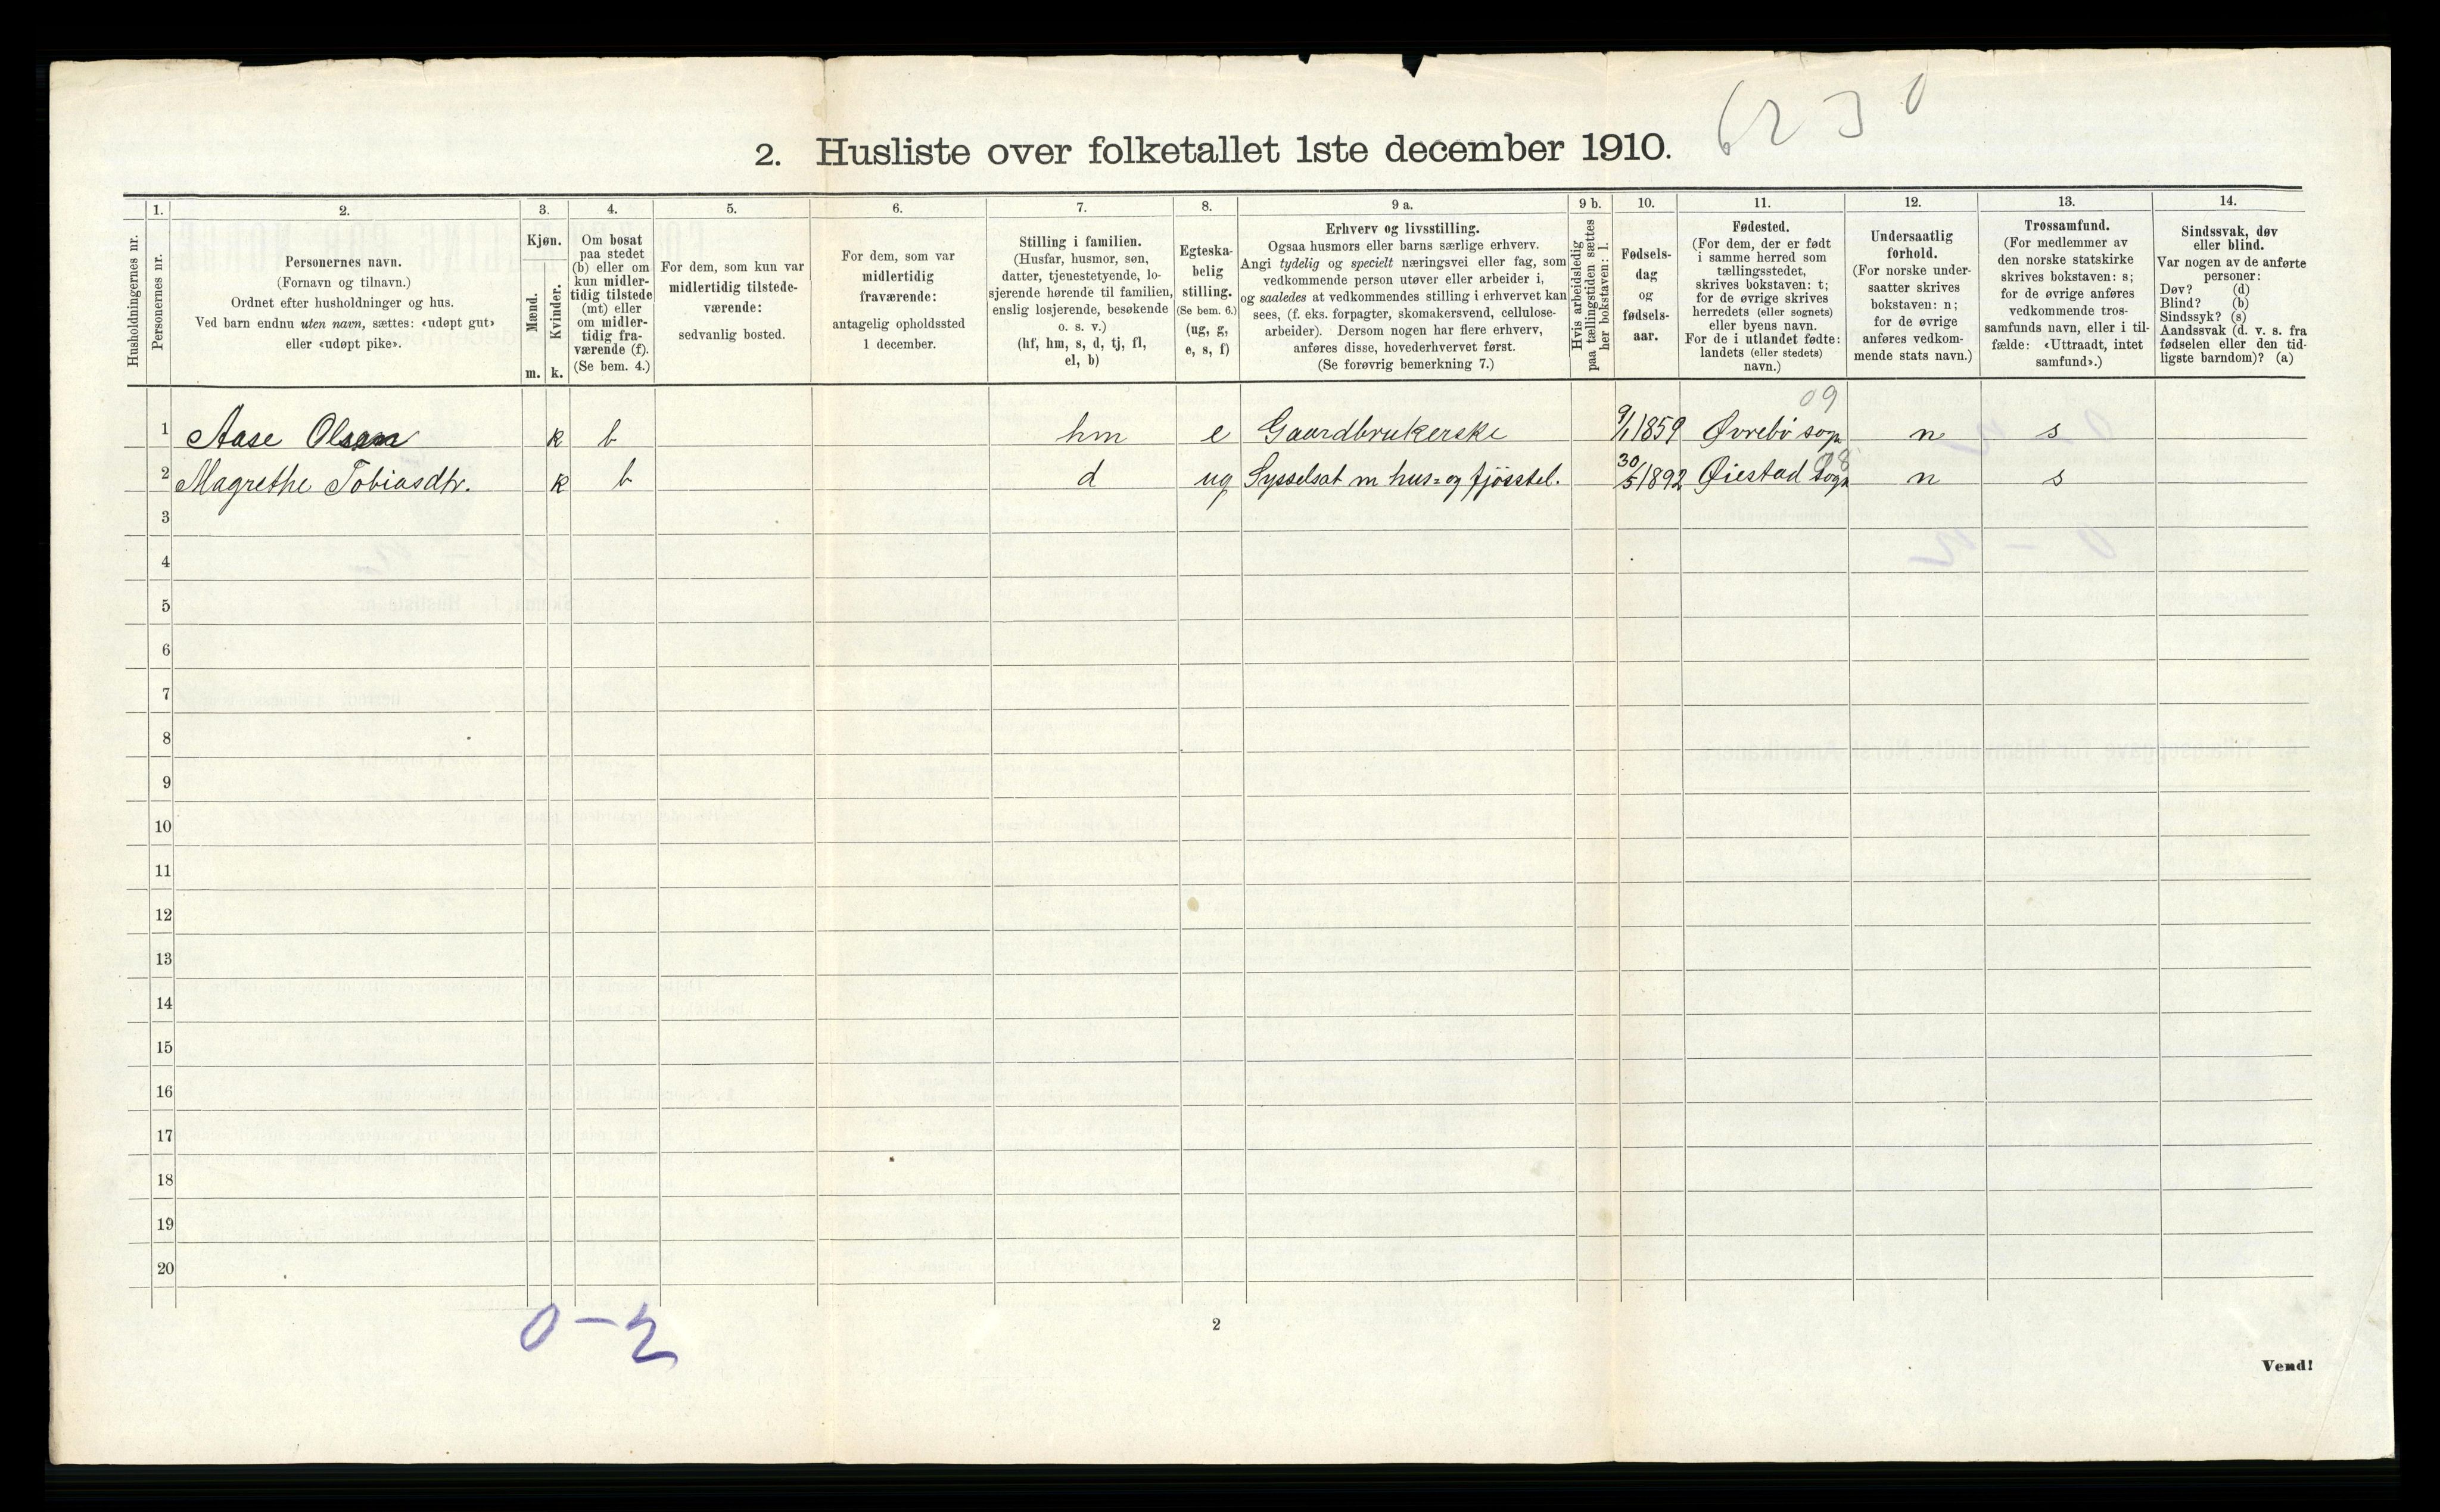 6230
2. Husliste over folketallet 1ste december 1910.
Husholdningernes nr.
1.
Personernes nr.
2.
Personernes navn.
(Fornavn og tilnavn.)
Ordnet efter husholdninger og hus.
Ved barn endnu uten navn, sættes: «udøpt gut»
eller «udøpt pike».
3.
Kjøn.
Mænd.
Kvinder.
m. k.
4.
Om bosat
paa stedet
(b) eller om
kun midler-
tidig tilstede
(mt) eller
om midler-
tidig fra-
værende (f).
(Se bem. 4.)
5.
For dem, som kun var
midlertidig tilstede-
værende:
sedvanlig bosted.
6.
For dem, som var
midlertidig
fraværende:
antagelig opholdssted
1 december.
7.
Stilling i familien.
(Husfar, husmor, søn,
datter, tjenestetyende, lo-
sjerende hørende til familien,
enslig losjerende, besøkende
o. s. v.)
(hf, hm, s, d, tj, fl,
el, b)
8.
Egteska-
belig
stilling.
(Se bem. 6.)
(ug, g,
e, s, f)
9 a.
Erhverv og livsstilling.
Ogsaa husmors eller barns særlige erhverv.
Angi tydelig og specielt næringsvei eller fag, som
vedkommende person utøver eller arbeider i,
og saaledes at vedkommendes stilling i erhvervet kan
sees, (f. eks. forpagter, skomakersvend, cellulose-
arbeider). Dersom nogen har flere erhverv,
anføres disse, hovederhvervet først.
(Se forøvrig bemerkning 7.)
9 b.
Hvis arbeidsledig
paa tællingstiden sættes
her bokstaven: l.
10.
Fødsels-
dag
og
fødsels-
aar.
11.
Fødested.
(For dem, der er født
i samme herred som
tællingsstedet,
skrives bokstaven: t;
for de øvrige skrives
herredets (eller sognets)
eller byens navn.
For de i utlandet fødte:
landets (eller stedets)
navn.)
12.
Undersaatlig
forhold.
(For norske under-
saatter skrives
bokstaven: n;
for de øvrige
anføres vedkom-
mende stats navn.)
13.
Trossamfund.
(For medlemmer av
den norske statskirke
skrives bokstaven: s;
for de øvrige anføres
vedkommende tros-
samfunds navn, eller i til-
fælde: «Uttraadt, intet
samfund».)
14.
Sindssvak, døv
eller blind.
Var nogen av de anførte
personer:
Døv? (d)
Blind? (b)
Sindssyk? (s)
Aandssvak (d. v. s. fra
fødselen eller den tid-
ligste barndom)? (a)
09
1 Aase Olsen k b hm e Gaardbrukerske 9/1 1859 Øvrebø sogn n s
2 Magrethe Tobiasdtr. k b d ug Sysselsat m hus= og fjösstel. 30/5 1892 Øiestad Sogn n s
3
4
5
6
7
8
9
10
11
12
13
14
15
16
17
18
19
20
0-2
2
Vend!